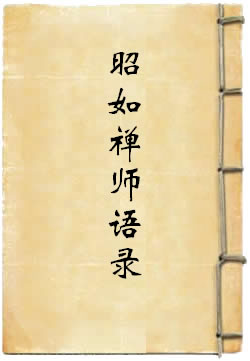 昭如禅师语录